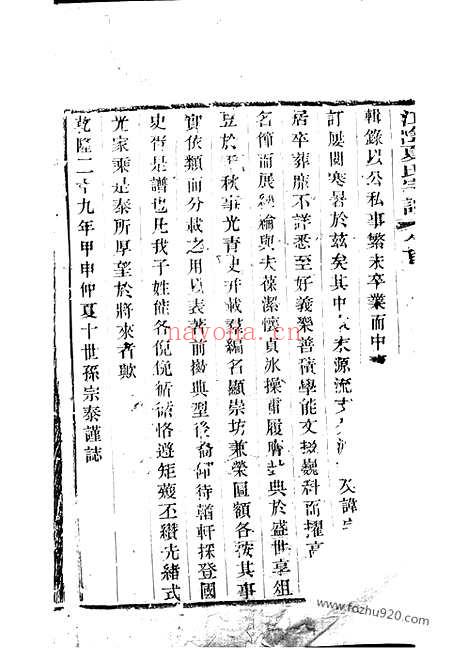 江陰夏氏宗譜 卷首
輯錄以公私事繁未卒業而中
訂屢閱寒暑於茲矣其中 末源流支
居卒葬靡不詳悉至好義樂善積學能文掇巍科而耀高
名節而展經綸與夫葆潔懷貞冰操 履膺 典於盛世享俎
豆於 秋 光青史 載 編名顯崇坊兼榮匾額各按其事
實依類而分載之用以表 前揚典型後裔仰待輶軒採登國
史胥是譜也凡我子姓能各俛俛循循恪遵矩 丕纘先緒式
光家乘是泰所厚望於將來者歟
乾隆二十九年甲申仲夏十世孫宗泰謹誌
nayona.cn
www.fozhu920.com